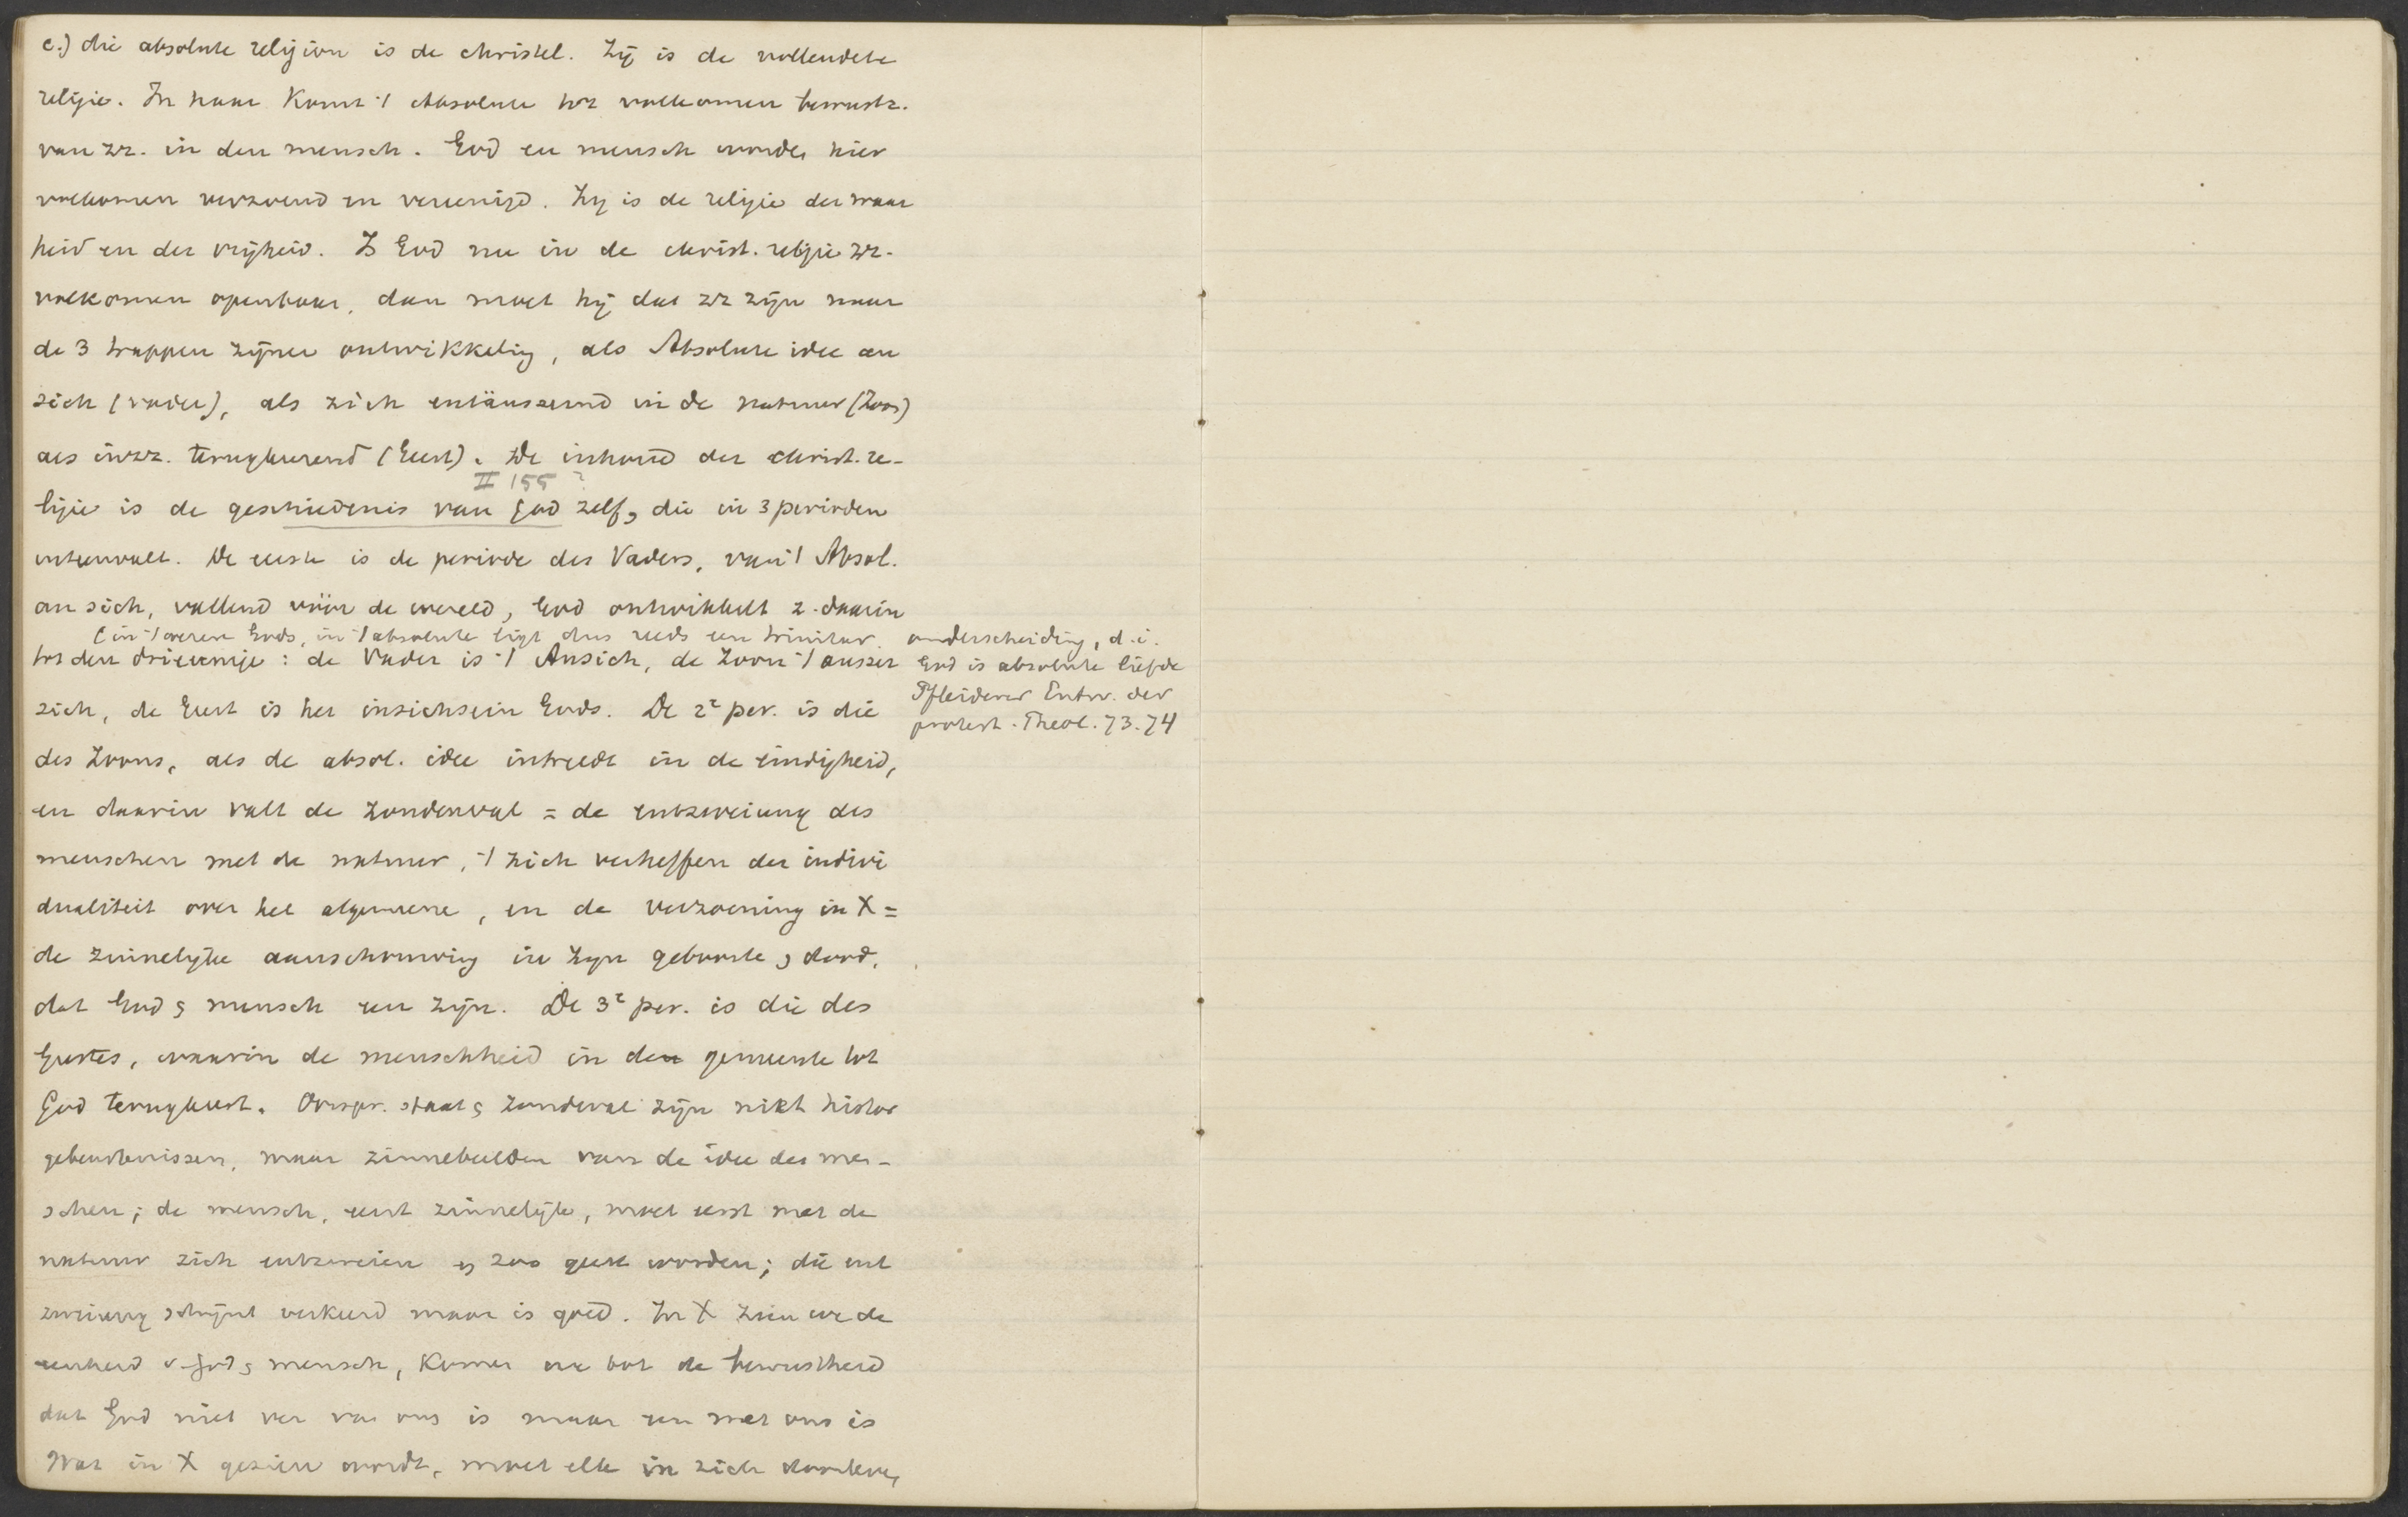 c.) die absolute religion is de christel. Zij is de vollendete
religie. In haar komt 't Absolute tot volkomen bewustz.
van zz. in den mensch. God en mensch worden hier
volkomen verzoend en vereenigd. Zij is de religie der waar
heid en der vrijheid. Is God nu in de christ. religie zz.
volkomen openbaar, dan moet hij dat zz zijn naar
de 3 trappen zijner ontwikkeling, als Absolute idee an
sich (vader), als zich entäussernd in de natuur (Zoon)
als in zz. terugkeerend (Geest). De inhoud der christ. re-
II 155 ?
ligie is de geschiedenis van God zelf, die in 3 perioden
uiteenvalt. De eerste is de periode des Vaders, van 't Absol.
an sich, vallend vóór de wereld, God ontwikkelt z. daarin
(in 't wezen Gods, in 't absolute ligt dus reeds een trinitar. onderscheiding, d.i.
tot den drieeenige: de Vader is 't Ansich, de Zoon 't ausser
God is absolute liefde
Pfleiderer Entw. der
zich, de Geest is het insichsein Gods. De 2e per. is die
protest. Theol. 73.74
des Zoons, als de absol. idee intreedt in de eindigheid,
en daarin valt de zondenval = de entzweiung des
menschen met de natuur, 't zich verheffen der indivi
dualiteit over het algemeene, en de verzoening in X =
de zinnelijke aanschouwing in zijn geboorte & dood,
dat God & mensch een zijn. De 3e per. is die des
Geestes, waarin de menschheid in den gemeente tot
God terugkeert. Oorspr. staat & zondeval zijn nikt histor
gebeurtenissen, maar zinnebeelden van de idee des men-
schen; de mensch, eerst zinnelijk, moet eerst met de
natuur zich entzweien & zoo geest worden; die ent
zweiung schijnt verkeerd maar is goed. In X zien we de
eenheid v. God & mensch, komen we tot de bewustheid
dat God niet ver van ons is maar een met ons is
Wat in X gezien wordt, moet elk in zich doorleven,